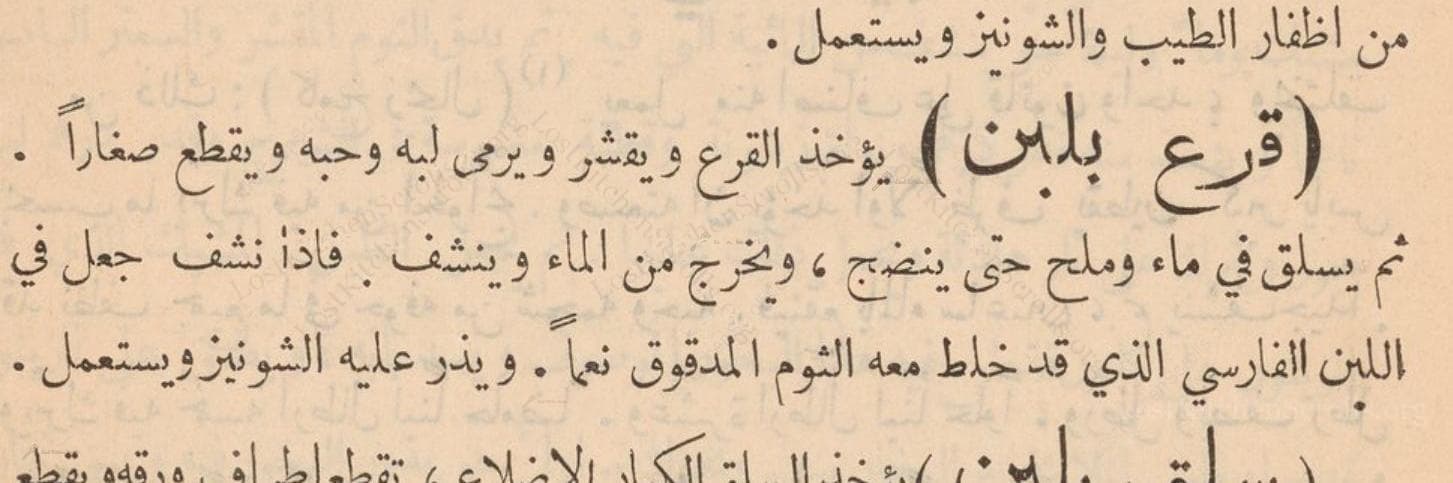 من اظفار الطيب والشونيز ويستعمل .
( قرع بلبن ) يؤخذ القرع ويقشر ويرمى لبه وحبه ويقطع صغاراً .
ثم يسلق في ماء وملح حتى ينضج ، ويخرج من الماء وينشف . فاذا نشف جعل في
اللبن الفارسي الذي قد خلط معه الثوم المدقوق نعماً . ويذر عليه الشونيز ويستعمل .
( سلق بلبن ) يؤخذ السلق الكبار الاضلاع ، تقطع اطراف ورقه ويقطع